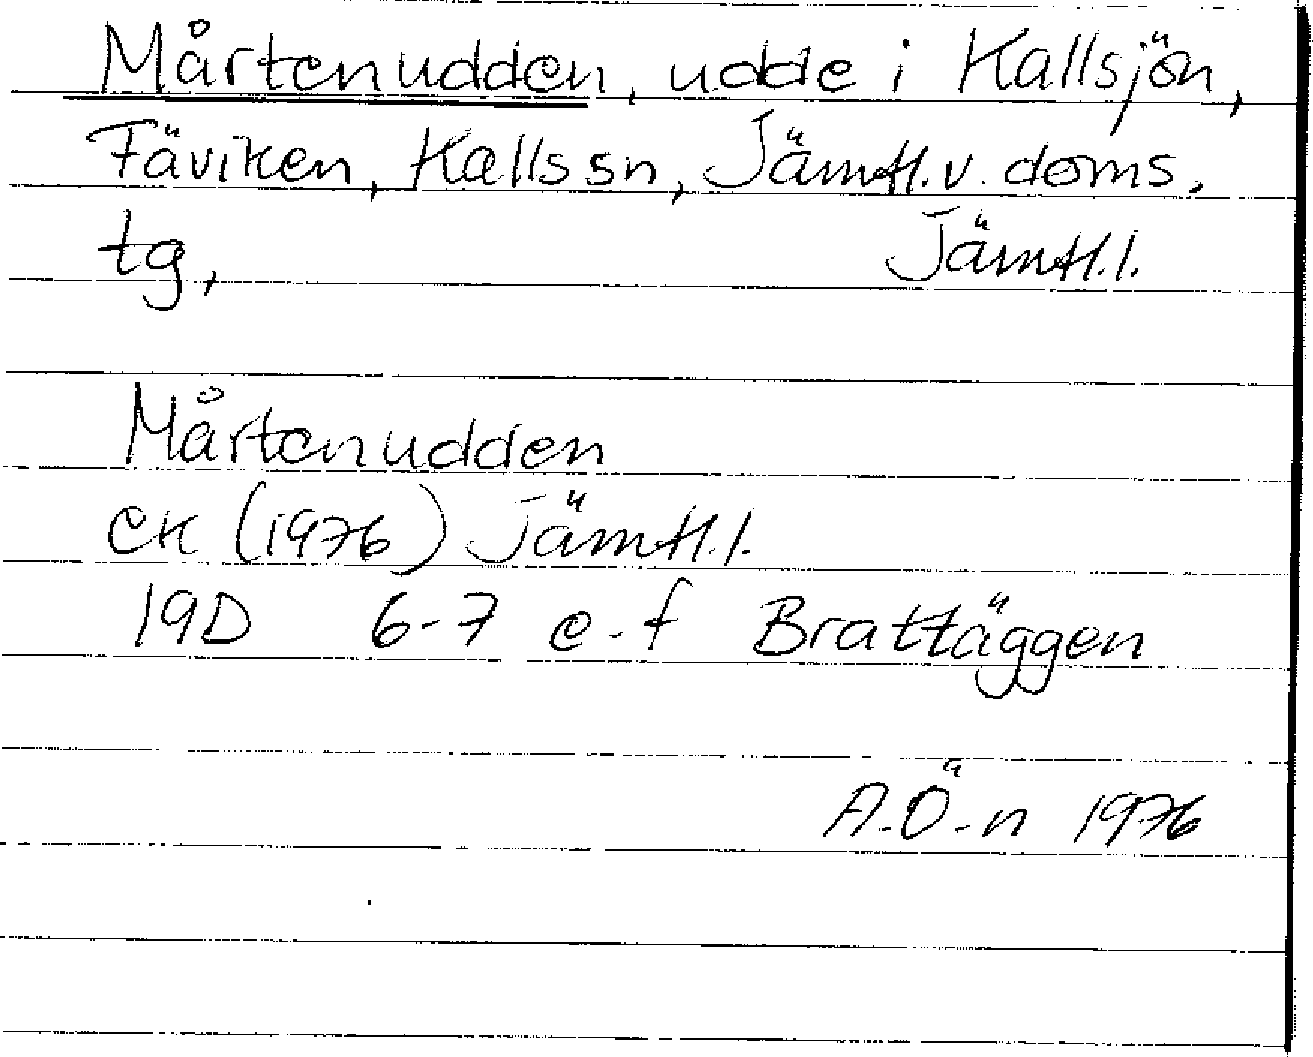 Mårtenudden, udde i Kallsjön,
Fäviken, Kalls sn, Jämtl. v. doms.
tg, Jämtl. l.
Mårtenudden
EK (1976) Jämtl. l.
19D 6-7 e-f Brattäggen
A.Ö-n 1976